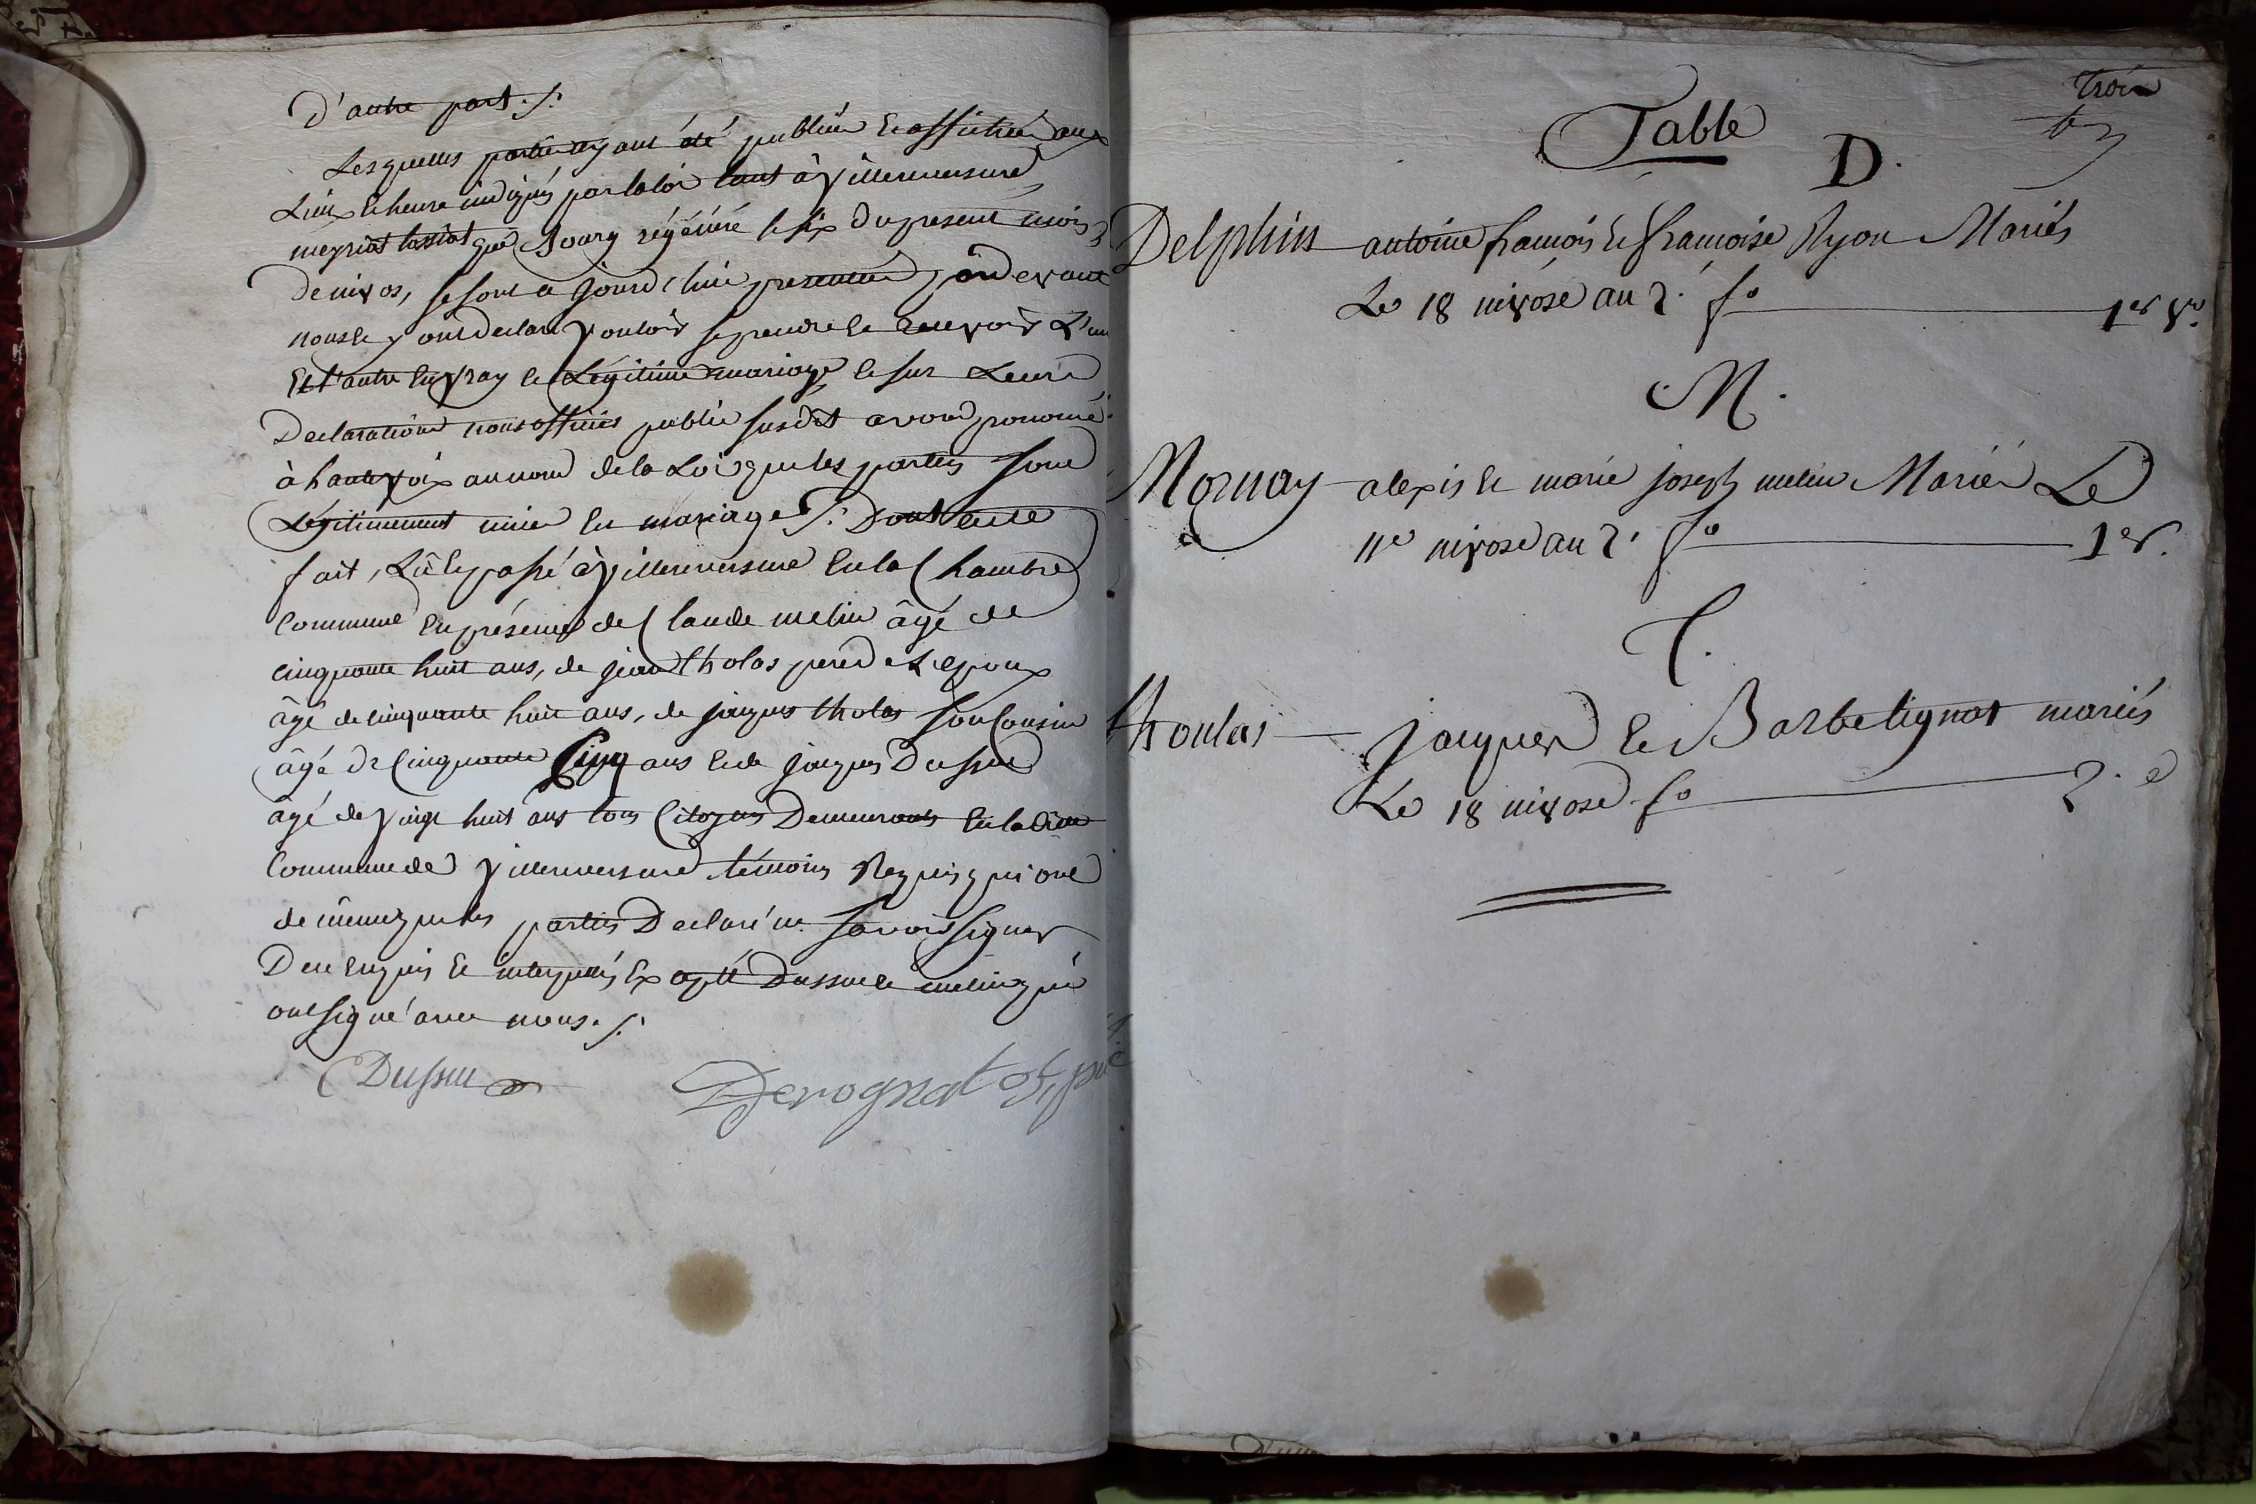 D'autre part ./.
Lesquelles parties ayant été publiées et affichées aux
Lieux et heure indiqués par la loi tant à Villereversure
meyriat tossiat que Bourg régénéré le six du present mois
de nivos, se sont a jourd'hui presentées pardevant
nous et y ont declaré vouloir se prendre et recevoir L'un
Et l'autre En vray et Légitime mariage, et sur Leurs
Declarations nous officier public susdit avons prononcé
à haute voix au nom de la Loi que les parties sont
Légitimement unies En mariage ./. Dont acte
fait, Lû et passé à Villereversure En la Chambre
Commune En présence de Claude melin âgé de
cinquante huit ans, de jean tholas pere de L'epoux
âgé de cinquante huit ans, de jacques tholas son Cousin
âgé de Cinquante Cinq ans et de jacques Dussue
âgé de vingt huit ans tous Citoyens Demeurants En la dite
Commune de Villereversure témoins Requis qui ont
de même que les parties Declaré ne savoir signer
De ce Enquis et interpellés Excepté Dussue et melin qui
ont signé avec nous ./.
Dussue Derognat off. pub
trois
Table
D.
Delphin antoine françois et françoise Ryon Mariés
Le 18 nivose an 2. fo 1er vo.
M.
Mornay alexis et marie joseph melin Mariés Le
11e nivose an 2. fo 1er.
T.
thoulas jacques et Barbe tignat mariés
Le 18 nivose fo 2.e